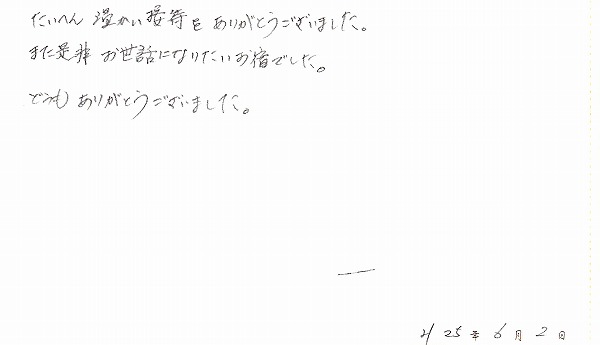 たいへん 温かい接待を ありがとうございました。
また是非 お世話になりたいお宿でした。
どうも ありがとうございました。
H25年6月2日